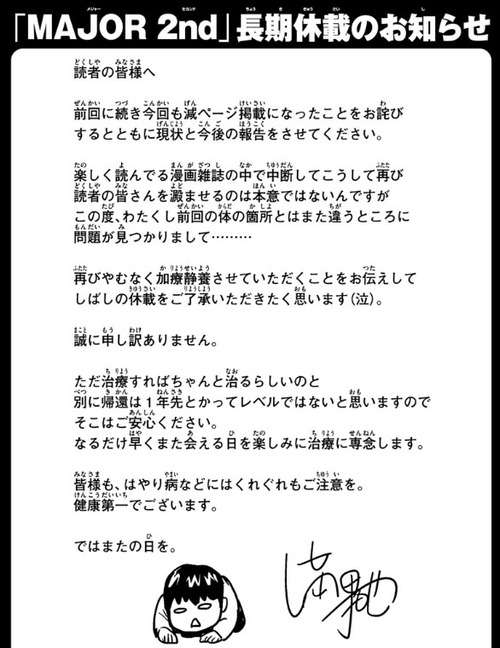 「MAJOR 2nd」長期休載のお知らせ
読者の皆様へ
前回に続き今回も減ページ掲載になったことをお詫び
するとともに現状と今後の報告をさせてください。
楽しく読んでる漫画雑誌の中で中断してこうして再び
読者の皆さんを澱ませるのは本意ではないんですが
この度、わたくし前回の体の箇所とはまた違うところに
問題が見つかりまして………
再びやむなく加療静養させていただくことをお伝えして
しばしの休載をご了承いただきたく思います(泣)。
誠に申し訳ありません。
ただ治療すればちゃんと治るらしいのと
別に帰還は1年先とかってレベルではないと思いますので
そこはご安心ください。
なるだけ早くまた会える日を楽しみに治療に専念します。
皆様も、はやり病などにはくれぐれもご注意を。
健康第一でございます。
ではまたの日を。
満田拓也